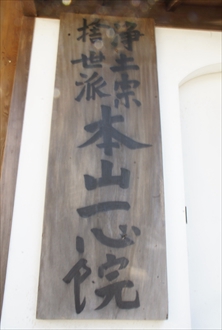 浄土宗
捨世派
本山一心院